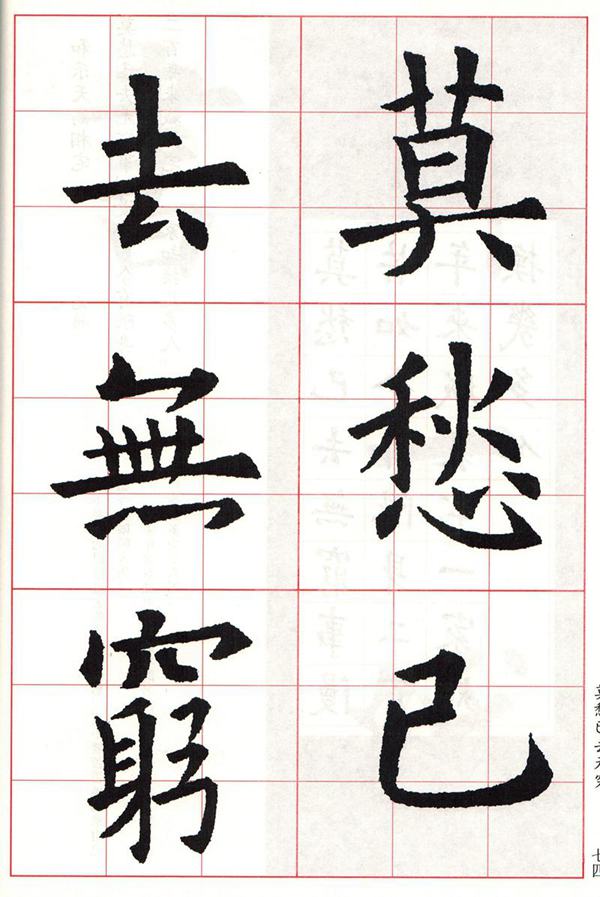 莫愁已
去無窮
莫愁已去无穷
七四